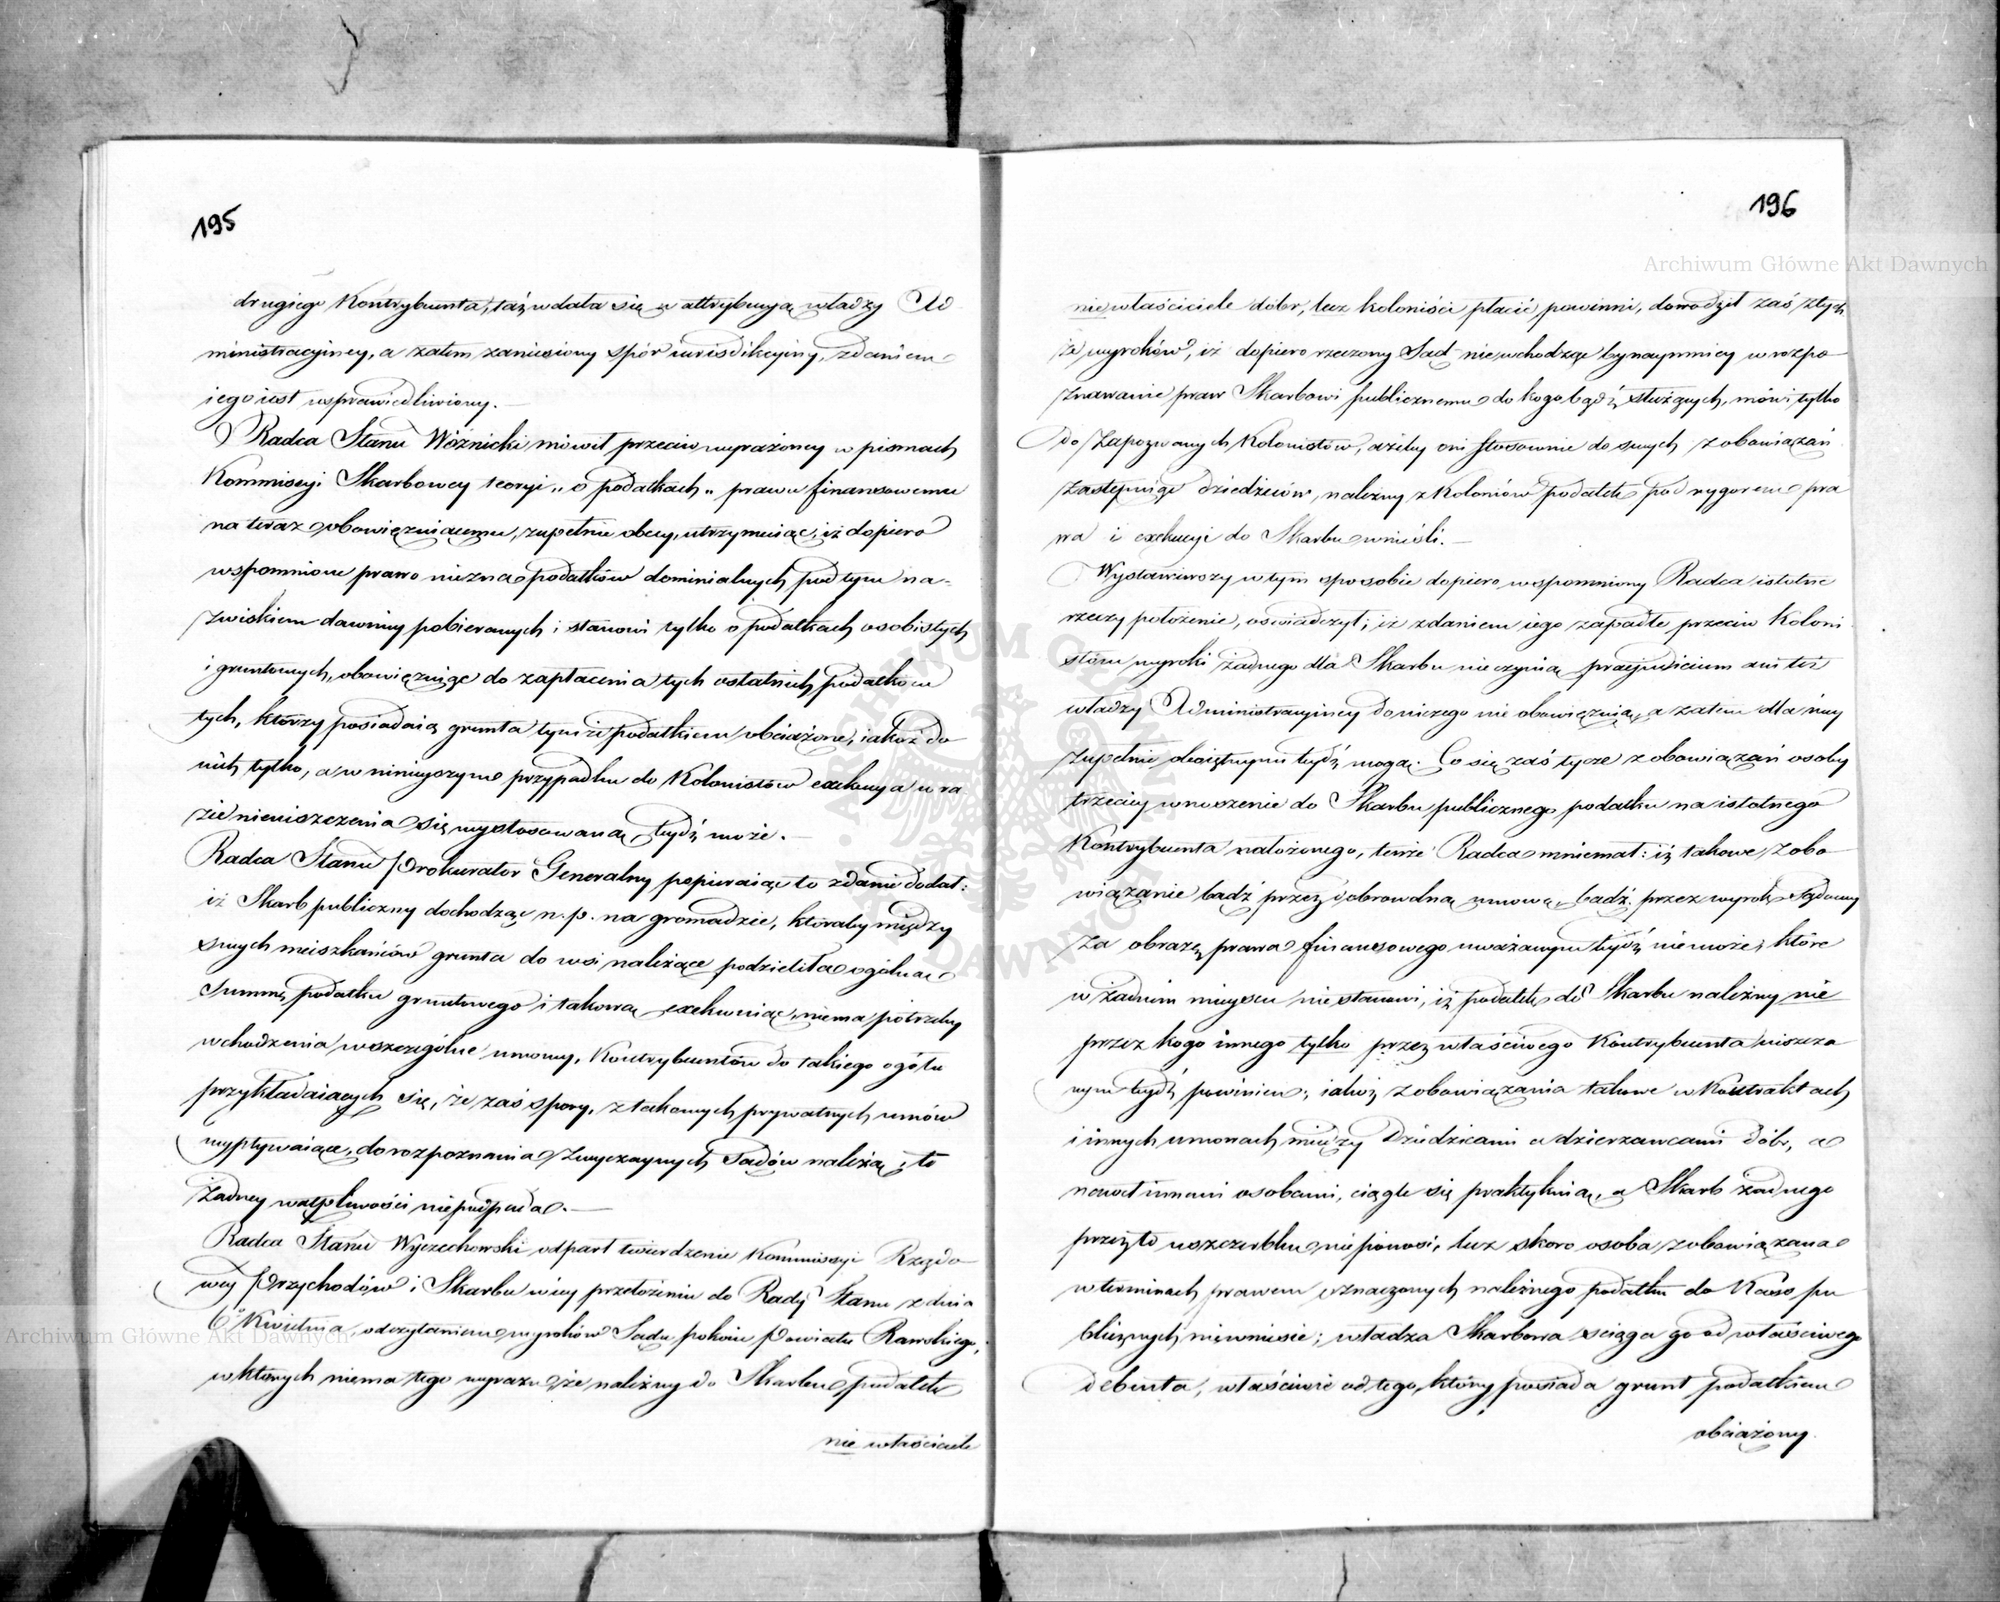 195
drugiego Kontrybuenta, taż wdała się w attrybucyą władzy Ad
ministracyiney, a zatem zaniesiony spór iurisdikcyiny, zdaniem
iego iest usprawiedliwiony.—
Radca Stanu Woźnicki mówił przeciw wyrażoney w pismach
Kommissyi Skarbowey teoryi „o podatkach„ prawu finansowemu
na teraz obowięzuiącemu, zupełnie obcey, utrzymuiąc, iż dopiero
wspomnione prawo niezna podatków dominialnych pod tym na-
zwiskiem dawniey pobieranych i stanowi tylko o podatkach osobistych
i gruntowych, obowięzuiąc do zapłacenia tych ostatnich podatków
tych, którzy posiadaią grunta tymże podatkiem obciążone, iakoż do
nich tylko, a w ninieyszym przypadku do Kolonistów exekucya w ra
zie nieuiszczenia się wystosowaną bydź może.—
Radca Stanu Prokurator Generalny popieraiąc to zdanie dodał:
iż Skarb publiczny dochodząc n. p. na gromadzie, któraby między
swych mieszkańców grunta do wsi należące podzieliła ogólną
Summę podatku gruntowego i takową exekwuiąc, niema potrzeby
wchodzenia w szczególne umowy, Kontrybuentów do takiego ogółu
przykładaiących się, że zaś spory, z takowych prywatnych umów
wypływaiące, do rozpoznania zwyczaynych Sądów należą, to
żadney wątpliwości niepodpada.—
Radca Stanu Wyczechowski odparł twierdzenie Kommissyi Rządo
wey Przychodów i Skarbu w iey przełożeniu do Rady Stanu z dnia
6º Kwietnia, odczytaniem wyroków Sądu pokoiu Powiatu Rawskiego,
w których niema tego wyrazu, że należny do Skarbu podatek
nie właściciele
196
nie właściciele dóbr, lecz koloniści płacić powinni, dowodził zaś z tych
że wyroków, iż dopiero rzeczony Sąd niewchodząc bynaymniey w rozpo
znawanie praw Skarbowi publicznemu do kogobądź służących, mówi tylko
do zapozwanych Kolonistów, ażeby oni stosownie do swych zobowiązań
zastępuiąc dziedziców, należny z Koloniów podatek pod rygorem pra
wa i exekucyi do Skarbu wnieśli.—
Wystawiwszy w tym sposobie dopiero wspomniony Radca istotne
rzeczy położenie, oświadczył; iż zdaniem iego zapadłe przeciw Koloni
stom wyroki żadnego dla Skarbu nie czynią praejudicium ani też
władzy Administracyiney do niczego nie obowięzuią, a zatem dla niey
zupełnie obojętnymi bydź mogą. Co się zaś tycze zobowiązań osoby
trzeciey wnoszenie do Skarbu publicznego podatku na istotnego
Kontrybuenta nałożonego, tenże Radca mniemał: iż takowe zobo
wiązanie bądź przez dobrowolną umowę, bądź przez wyrok Sądowy
za obrazę prawa finansowego uważanym bydź niemoże, które
w żadnem mieyscu niestanowi, iż podatek do Skarbu należny nie
przez kogo innego tylko przez właściwego Kontrybuenta uiszcza
nym bydź powinien; iakoż zobowiązania takowe w Kontraktach
i innych umowach między Dziedzicami a dzierzawcami dóbr, a
nawet innemi osobami, ciągle się praktykuią, a Skarb żadnego
przez to uszczerbku nieponosi, lecz skoro osoba zobowiązana
w terminach prawem oznaczonych należnego podatku do Kass pu
blicznych niewniesie; władza Skarbowa sciąga go od właściwego
debenta, właściwie od tego, który posiada grunt podatkiem
obciążony.
Archiwum Główne Akt Dawnych
Archiwum Główne Akt Dawnych
ARCHIWUM GŁÓWNE AKT DAWNYCH